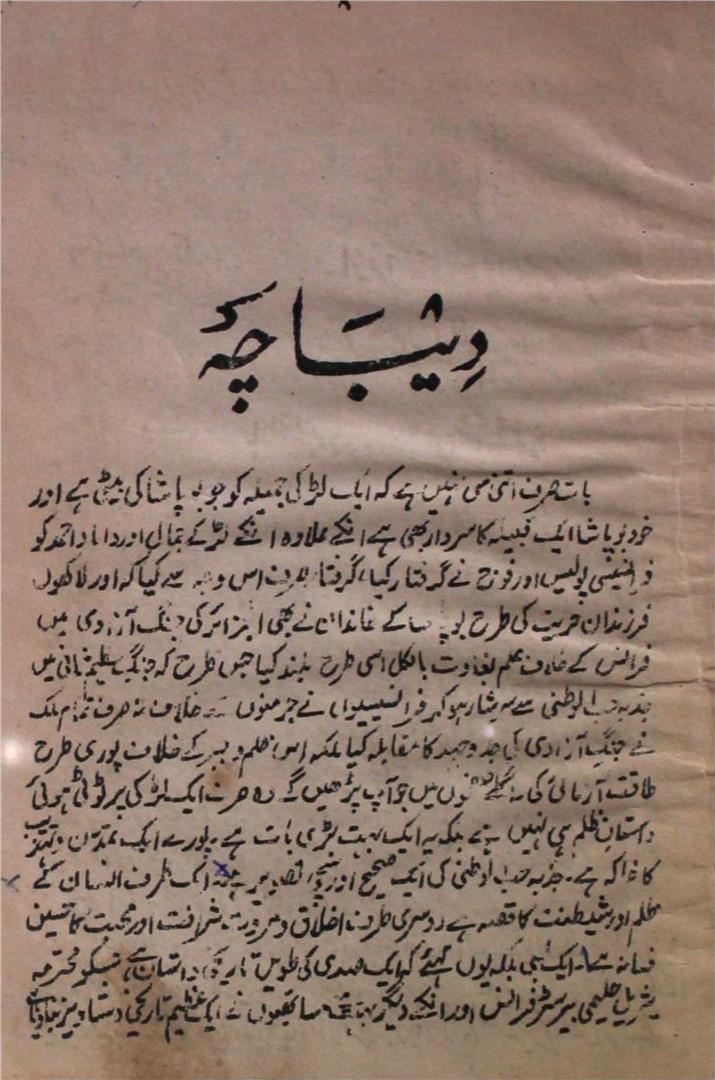 دیباچہ
بات صرف اتنی سی نہیں ہے کہ ایک لڑکی جمیلہ کو جو بو پاشا کی بیٹی ہے اور
خود بو پاشا ایک قبیلہ کا سردار بھی ہے انکے علاوہ انکے لڑکے جمال اور داماد احمد کو
فرانسیسی پولیس اور فوج نے گرفتار کیا، گرفتار صرف اس وجہ سے کیا کہ اور لاکھوں
فرزندان حریت کی طرح بوپاشا کے خاندان نے بھی الجزائر کی جنگ آزادی میں
فرانس کے خلاف علم بغاوت بالکل اسی طرح بلند کیا جس طرح کہ جنگ عظیم ثانی میں
جذبہ حب الوطنی سے سرشار ہو کر فرانسیسیوں نے جرمنوں کے خلاف نہ صرف تمام ملک
نے جنگ آزادی کی جدوجہد کا مقابلہ کیا بلکہ اس ظلم و جبر کے خلاف پوری طرح
طاقت آزمائی کی۔ اگلے صفحوں میں جو آپ پڑھیں گے وہ صرف ایک لڑکی پر ٹوٹی ہوئی
داستان ظلم ہی نہیں ہے بلکہ یہ ایک بہت بڑی بات ہے۔ پورے ایک تمدن و تہذیب
کا خاکہ ہے۔ جذبہ حب الوطنی کی ایک صحیح اور سچی تصویر ہے۔ ایک طرف انسان کے
ظلم اور شیطنت کا قصہ ہے دوسری طرف اخلاق و مروت، شرافت اور محبت کا حسین
فسانہ ہے۔ ایک ہی بلکہ یوں کہئے کہ ایک صدی کی طویل تاریخی داستان ہے جسکو محترمہ
حلیمی بیرسٹر فرانس اور انکے دیگر ساتھیوں نے ایک عظیم تاریخی دستاویز بنا دیا ہے